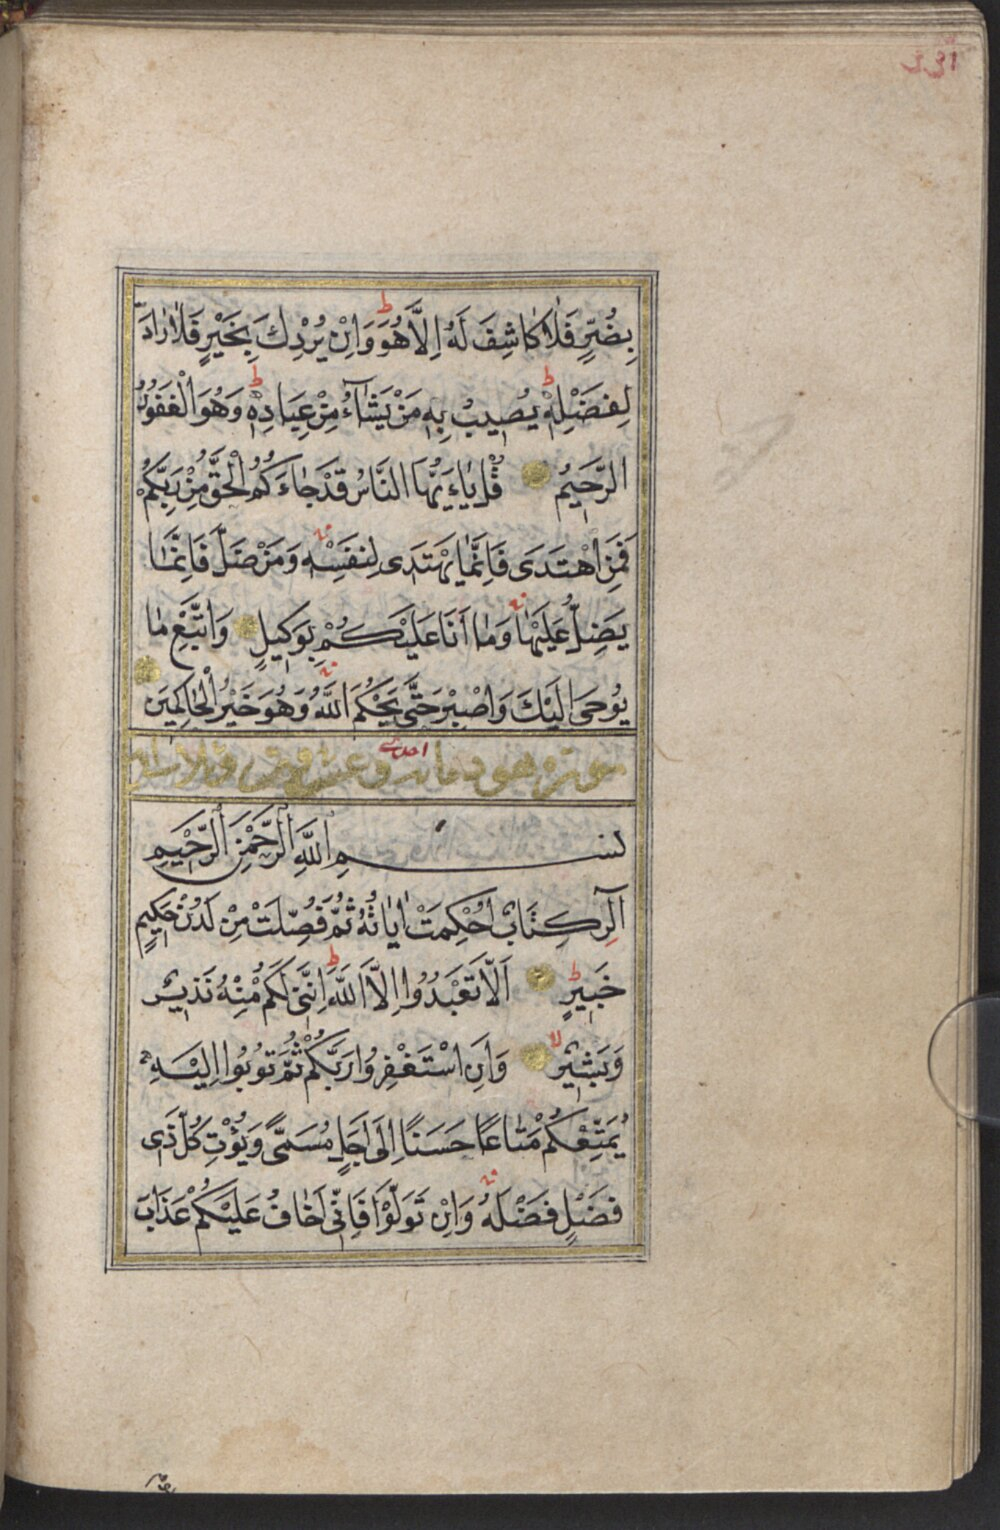 بِضُرٍّ فَلَا كَاشِفَ لَهُ اِلَّا هُوَ وَاِنْ يُرْدِكَ بِخَيْرٍ فَلَا رَادَّ
لِفَضْلِهِ يُصِيبُ بِهِ مَنْ يَشَاءُ مِنْ عِبَادِهِ وَهُوَ الْغَفُورُ
الرَّحِيمُ قُلْ يَاءَيُّهَا النَّاسُ قَدْ جَاءَكُمُ الْحَقُّ مِنْ رَبِّكُمْ
فَمَنِ اهْتَدَى فَاِنَّمَا يَهْتَدِى لِنَفْسِهِ وَمَنْ ضَلَّ فَاِنَّمَا
يَضِلُّ عَلَيْهَا وَمَا اَنَا عَلَيْكُمْ بِوَكِيلٍ وَاتَّبِعْ مَا
يُوحَى اِلَيْكَ وَاصْبِرْ حَتَّى يَحْكُمَ اللَّهُ وَهُوَ خَيْرُ الْحَاكِمِينَ
سورة هود مائة و عشرون و ثلاث
بِسْمِ اللَّهِ الرَّحْمَنِ الرَّحِيمِ
الٓر كِتَابٌ اُحْكِمَتْ اٰيَاتُهُ ثُمَّ فُصِّلَتْ مِنْ لَدُنْ حَكِيمٍ
خَبِيرٍ اَلَّا تَعْبُدُوا اِلَّا اللَّهَ اِنَّنِى لَكُمْ مِنْهُ نَذِيرٌ
وَبَشِيرٌ وَاَنِ اسْتَغْفِرُوا رَبَّكُمْ ثُمَّ تُوبُوا اِلَيْهِ
يُمَتِّعْكُمْ مَتَاعًا حَسَنًا اِلَى اَجَلٍ مُسَمًّى وَيُؤْتِ كُلَّ ذِى
فَضْلٍ فَضْلَهُ وَاِنْ تَوَلَّوْا فَاِنِّى اَخَافُ عَلَيْكُمْ عَذَابَ